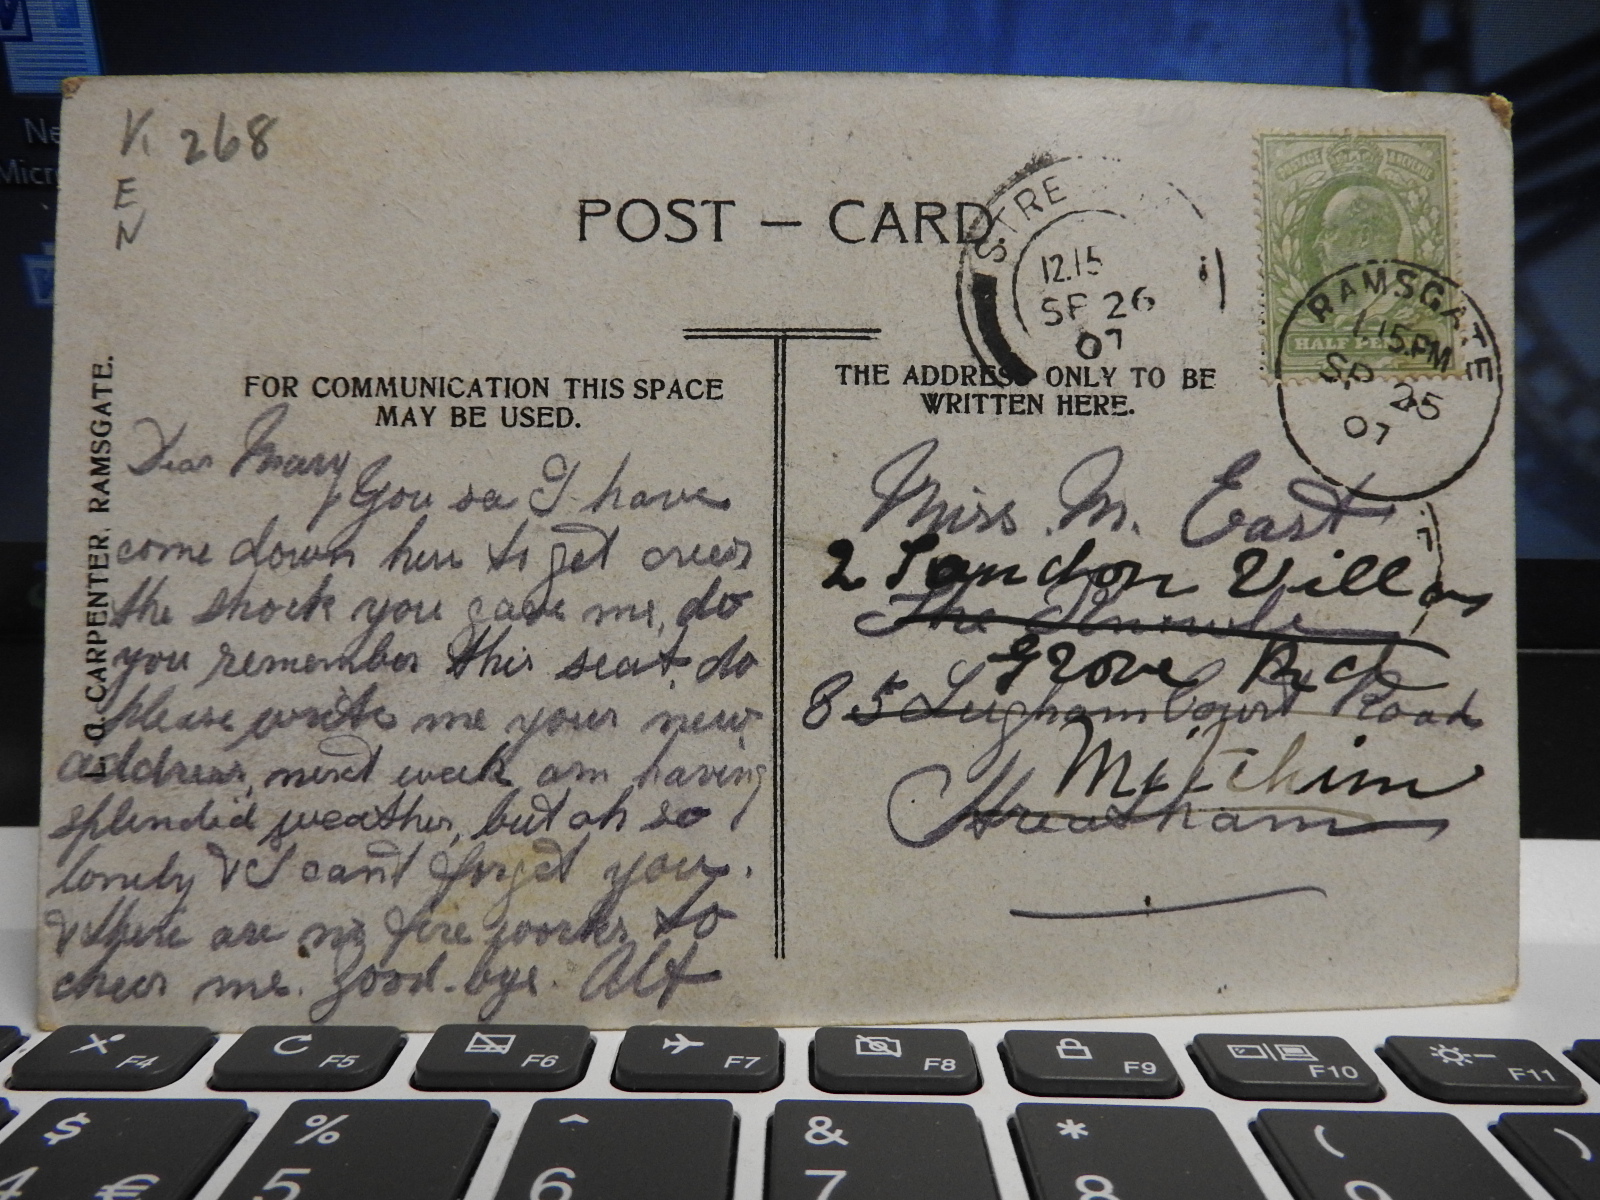 K 268
E
N
POST – CARD
STRE
12.15
SP 26
07
HALF PEN
RAMSGATE
1.15 PM
SP 25
07
FOR COMMUNICATION THIS SPACE
MAY BE USED.
THE ADDRESS ONLY TO BE
WRITTEN HERE.
CARPENTER, RAMSGATE.
Dear Mary
You see I have
come down here to get over
the shock you gave me, do
you remember this seat, do
please write me your new
address, next week am having
splendid weather, but oh so
lonely & I can't forget you.
& there are no fire works to
cheer me. Good-bye. Alf
Miss. M. East
2 Sandon Villas
The
Grove Rd
85 Leigham Court Road
Mitchim
Streatham
Ne
Micr
F4
F5
F6
F7
F8
F9
F10
F11
$ % ^ & * ( )
4 € 5 6 7 8 9